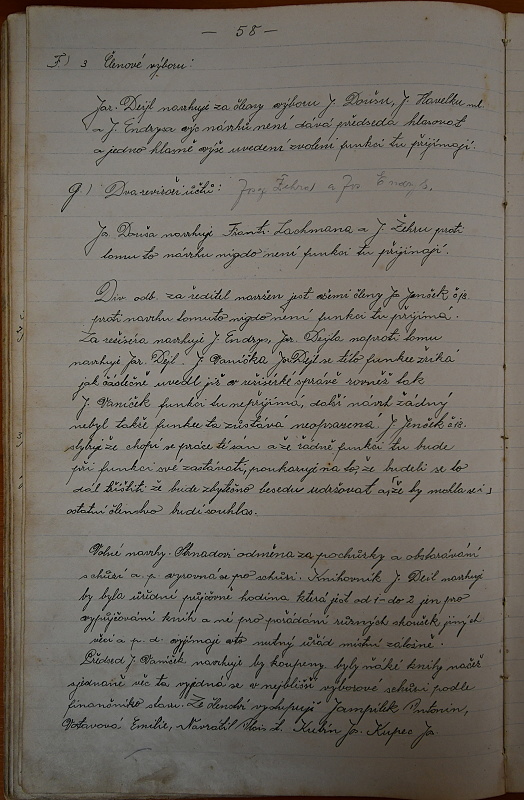 — 58 —
F) 3 Členové výboru:
Jar. Dejl navrhuje za členy výboru J. Doušu, J. Havelku ml.
a J. Endrysa víc návrhů není dává předseda hlasovat
a jedno hlasně výše uvedení zvolení funkci tu přijímají.
g) Dva revisoři účtů: Josef Žehra a Jos Endrys.
Jos. Douša navrhuje Frant. Lachmana a J. Žehru proti
tomu to návrhu nigdo není funkci tu přijímají.
Div. odb. za ředitel navržen jest všemi členy Jos Jeníček čís.
proti navrhu tomuto nigdo není funkci tu přijímá.
Za režiséra navrhuje J. Endrys, Jar. Dejla naproti tomu
navrhuje Jar. Dejl J. Vaníčka Jar Dejl se této funkce zříká
jak částečně uvedl již v režisérské správě rovněž tak
J. Vaníček funkci tu nepřijímá, další návrh žádný
nebyl takže funkce ta zůstává neobsazená. J. Jeníček čís.
slibuje že chopí se práce té sám a že řádně funkci tu bude
při funkci své zastávati, poukazuje na to, že budeli se to
dál tříštiti že bude zbytečno besedu udržovat a že by mohla se i
ostatní členstvo budí souhlas.
Volné navrhy. Strnadovi odměna za pochůzky a obstarávání
schůzí a p. vyrovná se po schůzi. Knihovník J. Dejl navrhuje
by byla úřední půjčovní hodina která jest od 1 - do 2 jen pro
vypůjčování knih a né pro pořádání různých zkoušek jiných
věcí a p. d. vyjímaje v to nutný úřad místní záložně.
Předsed J. Vaníček navrhuje by koupeny byly ňáké knihy načež
sjednaně věc ta vyjedná se v nejbližší výborové schůzi podle
finančního stavu. Ze členství vystupují Jampílek Antonín,
Votavová Emilie, Navrátil Alois st. Kubín Jos. Kupec Jos